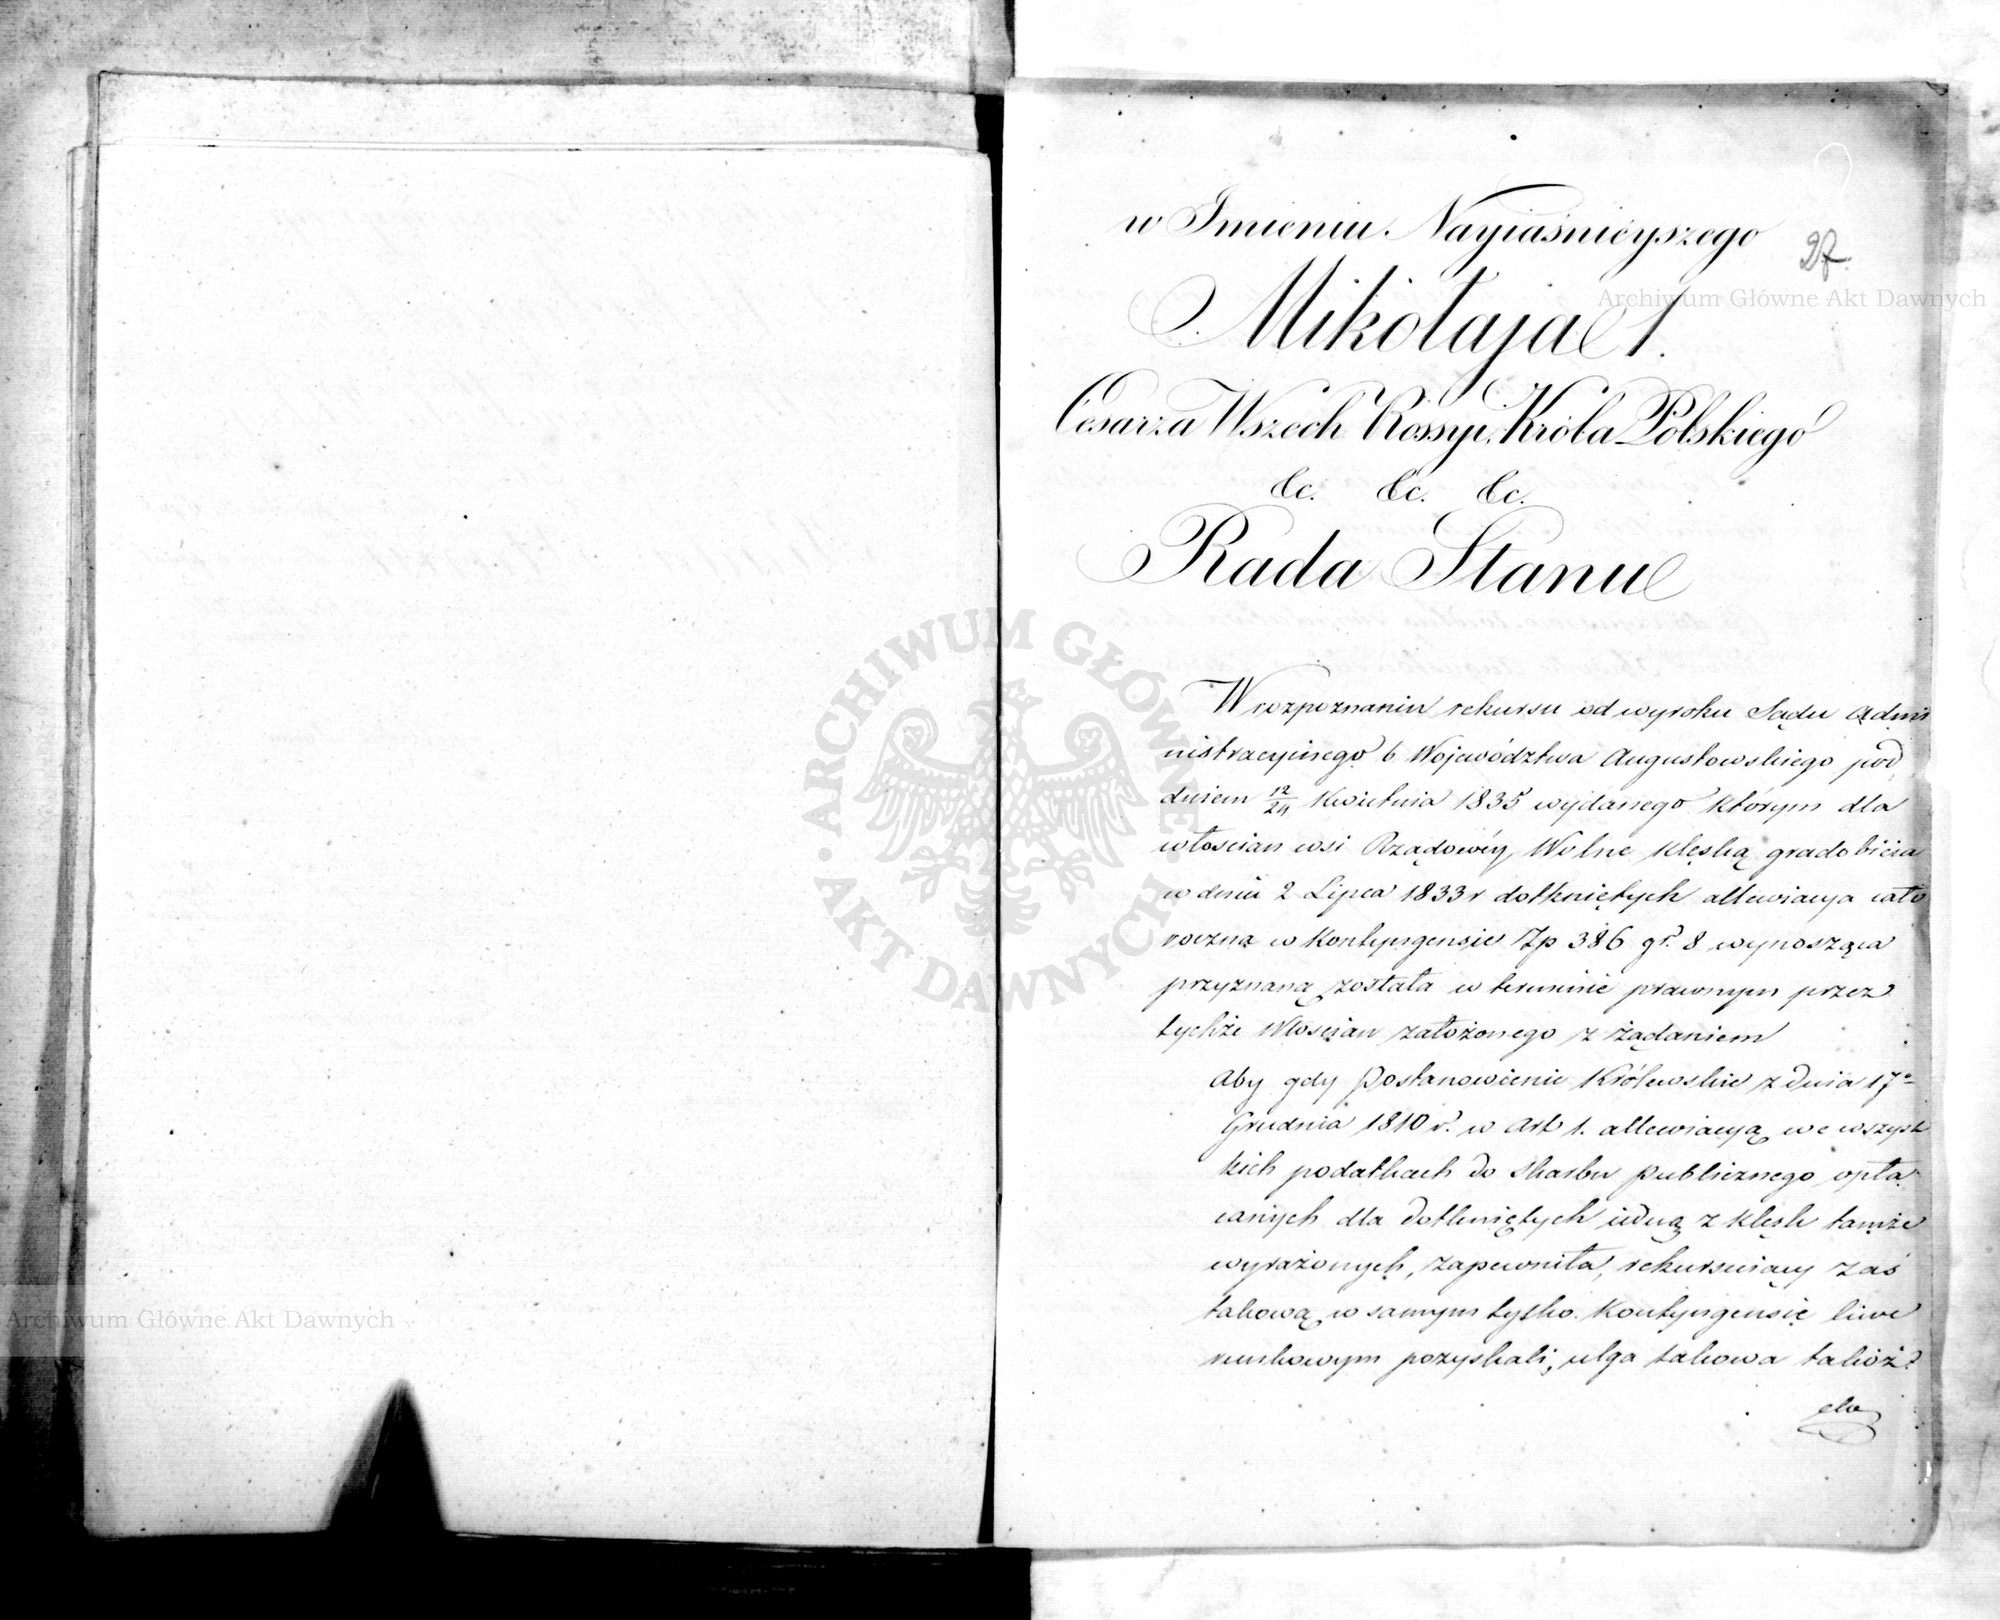 w Imieniu Nayiaśnieyszego
27.
Mikołaja 1.
Cesarza Wszech Rossyi, Króla Polskiego
&c. &c. &c.
Rada Stanu
W rozpoznaniu rekursu od wyroku Sądu Admi
nistracyinego b. Województwa Augustowskiego pod
dniem 12/24 Kwietnia 1835 wydanego którym dla
włościan wsi Rządowéy Wolne klęską gradobicia
w dniu 2 Lipca 1833 r dotkniętych allewiacya cało
roczna w Kontyngensie Zp 386 gr. 8 wynosząca
przyznaną została w terminie prawnym przez
tychże Włościan założonego z żądaniem
Aby gdy Postanowienie Królewskie z Dnia 17o
Grudnia 1810 r. w Art 1. allewiacyą we wszyst
kich podatkach do Skarbu Publicznego opła
canych dla dotkniętych iedną z klęsk tamże
wyrażonych, zapewniła, rekursuiący zaś
takową w samym tylko Kontyngensie liwe
runkowym pozyskali, ulga takowa takóż
Archiwum Główne Akt Dawnych
Archiwum Główne Akt Dawnych
ARCHIWUM GŁÓWNE · AKT DAWNYCH ·